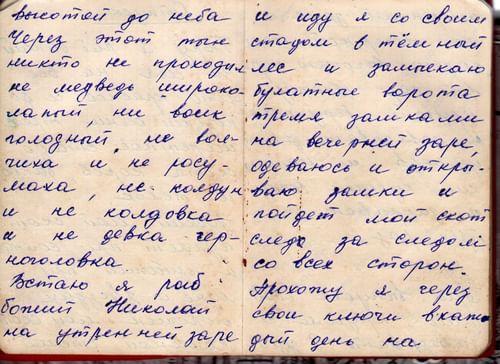 высотой до неба
Через этот тын
никто не проходил
не медведь широко-
лапый, ни волк
голодный, не вол-
чиха и не росу-
маха, не колдун
и не колдовка
и не девка чер-
ноголовка
Встаю я раб
божий Николай
на утренней заре
и иду я со своим
стадом в тёмный
лес и замыкаю
булатные ворота
тремя замками
на вечерней заре,
одеваюсь и откры-
ваю замки и
пойдет мой скот
следь за следом
со всех сторон.
Прохожу я через
свои ключи в каж-
дый день на